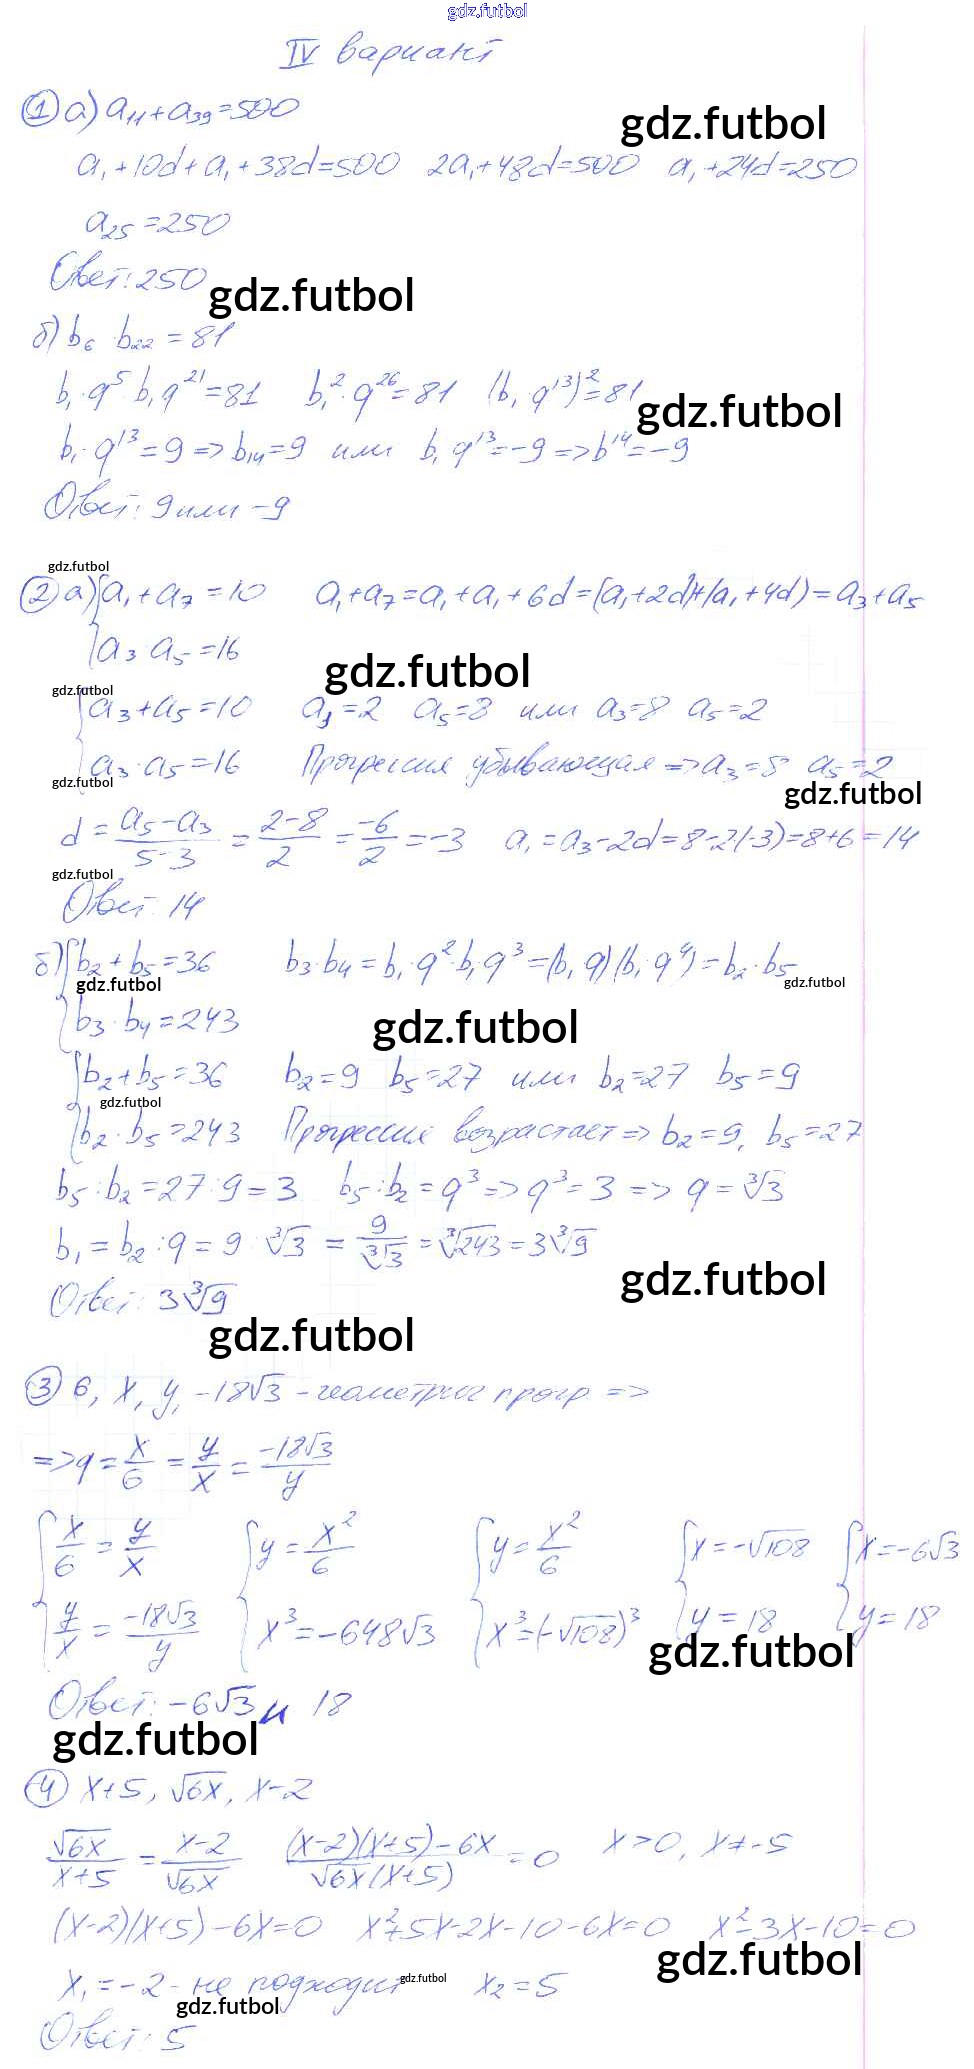 gdz.futbol
IV вариант
① а) a₁₁ + a₃₉ = 500
gdz.futbol
a₁ + 10d + a₁ + 38d = 500   2a₁ + 48d = 500   a₁ + 24d = 250
a₂₅ = 250
Ответ: 250
gdz.futbol
б) b₆ · b₂₂ = 81
b₁ · q⁵ · b₁ q²¹ = 81   b₁² · q²⁶ = 81   (b₁ q¹³)² = 81
gdz.futbol
b₁ · q¹³ = 9 => b₁₄ = 9 или b₁ q¹³ = -9 => b¹⁴ = -9
Ответ: 9 или -9
gdz.futbol
② а) { a₁ + a₇ = 10   a₁ + a₇ = a₁ + a₁ + 6d = (a₁ + 2d) + (a₁ + 4d) = a₃ + a₅
a₃ · a₅ = 16
gdz.futbol
gdz.futbol
{ a₃ + a₅ = 10   a₃ = 2   a₅ = 8 или a₃ = 8   a₅ = 2
a₃ · a₅ = 16   Прогрессия убывающая => a₃ = 8   a₅ = 2
gdz.futbol
gdz.futbol
d = (a₅ - a₃)/(5 - 3) = (2 - 8)/2 = -6/2 = -3   a₁ = a₃ - 2d = 8 - 2(-3) = 8 + 6 = 14
gdz.futbol
Ответ: 14
б) { b₂ + b₅ = 36   b₃ · b₄ = b₁ · q² · b₁ q³ = (b₁ q)(b₁ · q⁴) = b₂ · b₅
gdz.futbol
gdz.futbol
b₃ · b₄ = 243
gdz.futbol
{ b₂ + b₅ = 36   b₂ = 9   b₅ = 27 или b₂ = 27   b₅ = 9
gdz.futbol
b₂ · b₅ = 243   Прогрессия возрастает => b₂ = 9, b₅ = 27
b₅ : b₂ = 27 : 9 = 3   b₅ : b₂ = q³ => q³ = 3 => q = ∛3
b₁ = b₂ : q = 9 : ∛3 = 9/∛3 = ∛243 = 3∛9
gdz.futbol
Ответ: 3∛9
gdz.futbol
③ 6, x, y, -18√3 - геометрич прогр =>
=> q = x/6 = y/x = -18√3/y
{ x/6 = y/x   { y = x²/6   { y = x²/6   { x = -√108   { x = -6√3
y/x = -18√3/y   x³ = -648√3   x³ = (-√108)³   y = 18   y = 18
gdz.futbol
Ответ: -6√3 и 18
gdz.futbol
④ x + 5, √6x, x - 2
√6x/(x + 5) = (x - 2)/√6x   ((x - 2)(x + 5) - 6x)/(√6x (x + 5)) = 0   x > 0, x ≠ -5
(x - 2)(x + 5) - 6x = 0   x² + 5x - 2x - 10 - 6x = 0   x² - 3x - 10 = 0
gdz.futbol
x₁ = -2 - не подходит   x₂ = 5
gdz.futbol
gdz.futbol
Ответ: 5